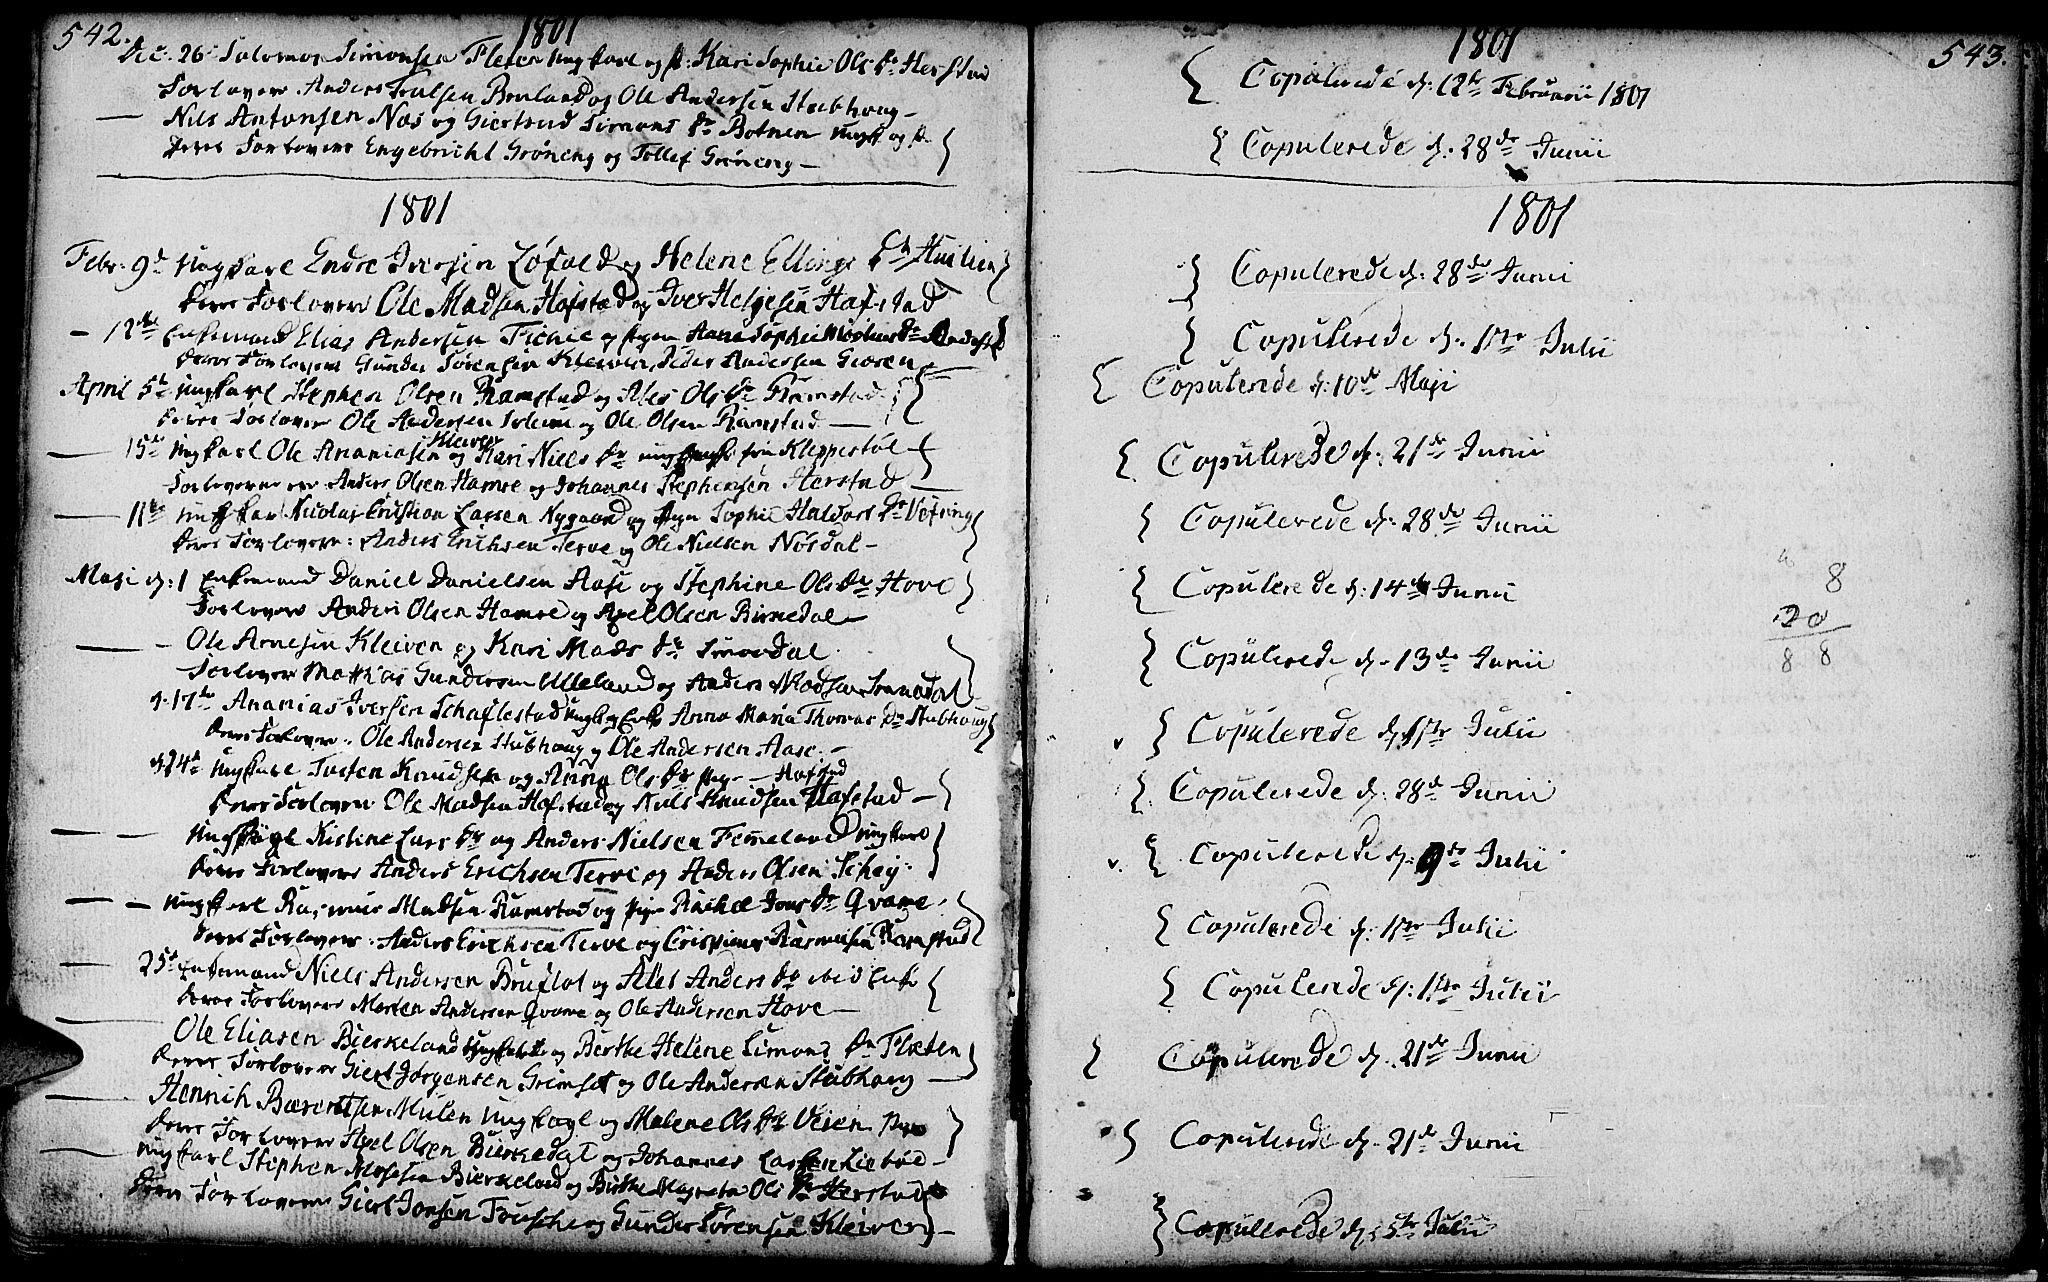 542.
1801
Dec: 26 Salomon Simonsen Fleten ung karl og p: Kari Sophie Ols Dr Herstad
Forlovere Anders Truelsen Bruland og Ole Andersen Stubhoug
Nils Antonsen Nøs og Giertrud Simons Dr Botnen ungk og p.
Deres Forlovere Engebricht Grøneng og Tollef Grøneng
1801
Febr: 9d ung karl Endre Iversen Løfald og Helene Ellings
Deres Forlovere Ole Madsen Hafstad og Iver Helgesen Hafstad
12te Enkemand Elias Andersen og Pigen Anne Sophie
Deres Forlovere Gunder Sørensen Kleiven, Peder Andersen
April 5t ungkarl Stephen Olsen Ramstad og Ales Ols Dr Ramstad
Deres Forlovere Ole Andersen og Ole Olsen Ramstad
Kleiven
15de ungkarl Ole Ananiasen og Kari Niels Dr fra Kleppestøl
Forloverne er Anders Olsen Hamre og Johannes Stephensen Herstad
11te ungkarl Nicolay Cristian Larsen Nygaard og Pigen Sophie Haldors Dr Vefring
Deres Forlovere: Anders Erichsen Terve og Ole Nielsen Nøsdal
Maji d: 1 Enkemand Daniel Danielsen Aase og Stephine Ols Dr Hove
Forlovere Anders Olsen Hamre og Axel Olsen Birkedal
Ole Arnesen Kleiven og Kari Mads Dr Sunddal
Forlovere Matthias Gundersen Ulleland og Anders Madsen
d. 17de Ananias Iversen Schaflestad ungk og Enke Anna Maria Thomas Dr Stubhoug
Deres Forlovere: Ole Andersen Stubhoug og Ole Andersen Aase
d. 24d ungkarl Tosten Knudsen og Anna Ols Dr Pige Hafstad
Deres Forlovere Ole Madsen Hafstad og Niels Knudsen Hafstad
Kistine Lars Dr og Anders Nielsen Femeland ungkarl
Deres Forlovere Anders Erichsen Terve og Anders Olsen
ungkarl Rasmus Madsen Ramstad og Pige Rachel Jons Dr Qvame
Deres Forlovere: Anders Erichsen Terve og Cristian Rasmusen Ramstad
25d Enkemand Niels Andersen Bruflot og Ales Anders Dr Enke
Deres Forlovere Morten Andersen Qvame og Ole Andersen Hove
Ole Eliasen Bierkeland ungkarl og Berthe Helene Simons Dr Fleten
Deres Forlovere Giert Jørgensen Grimset og Ole Andersen Stubhoug
Hennich Bærentsen Mulen og Malene Ols Dr Veien Pige
Deres Forlovere Axel Olsen Birkedal og Johannes Larsen
ungkarl Stephen Mosesen Bierkeland og Birthe Magreta Ols Dr Herstad
Deres Forlovere Giert Jonsen og Gunder Sørensen Kleiven
1801
543.
Copulerede d: 12te Februarii 1801
Copulerede d: 28de Junii
1801
Copulerede d: 28de Junii
Copulerede d. 1ste Julii
Copulerede d: 10de Maji
Copulerede d. 21de Junii
Copulerede d: 28de Junii
Copulerede d: 14de Junii
Copulerede d. 13de Junii
Copulerede d. 1ste Julii
Copulerede d: 28de Junii
Copulerede d: 9de Julii
Copulerede d. 1ste Julii
Copulerede d: 1ste Julii
Copulerede d. 21de Junii
Copulerede d. 21de Junii
Copulerede d. 5te Julii
8
20
8 8